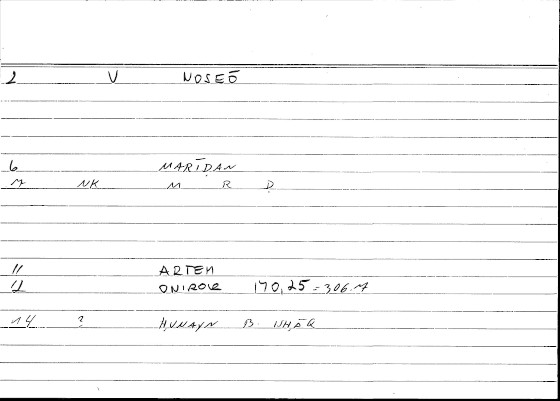 2 V NOSEŌ
6 MARĪḌAN
7 NK M R Ḍ
11 ARTEM
12 ONIROK 170,25 = 306.7
14 ? ḤUNAYN B. ISḤĀQ